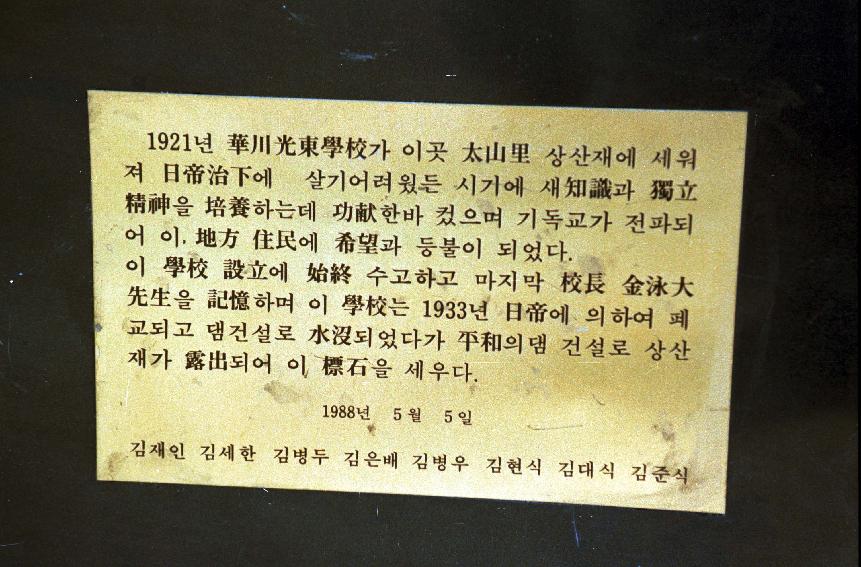 1921년 華川光東學校가 이곳 太山里 상산재에 세워
져 日帝治下에 살기어려웠든 시기에 새知識과 獨立
精神을 培養하는데 功献한바 컸으며 기독교가 전파되
어 이. 地方 住民에 希望과 등불이 되었다.
이 學校 設立에 始終 수고하고 마지막 校長 金泳大
先生을 記憶하며 이 學校는 1933년 日帝에 의하여 폐
교되고 댐건설로 水沒되었다가 平和의댐 건설로 상산
재가 露出되어 이 標石을 세우다.
1988년 5월 5일
김재인 김세한 김병두 김은배 김병우 김현식 김대식 김준식